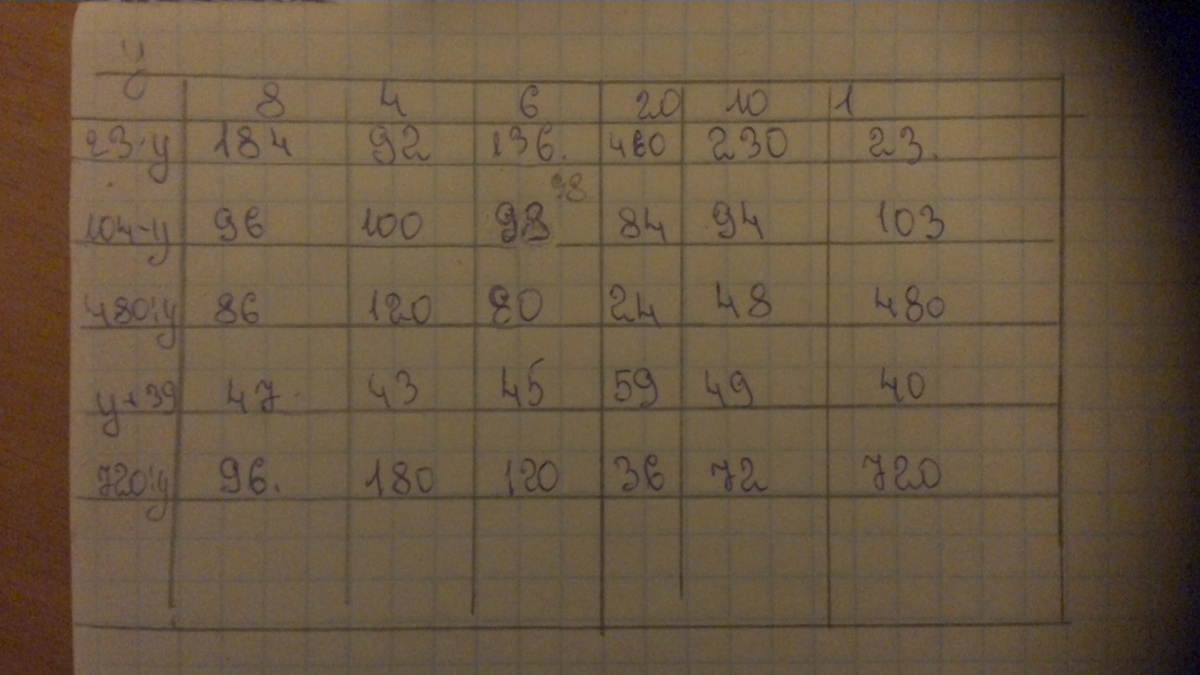 y
8 4 6 20 10 1
23·y 184 92 136. 460 230 23.
98
104-y 96 100 98 84 94 103
480:y 86 120 80 24 48 480
y+39 47 43 45 59 49 40
720:y 96. 180 120 36 72 720